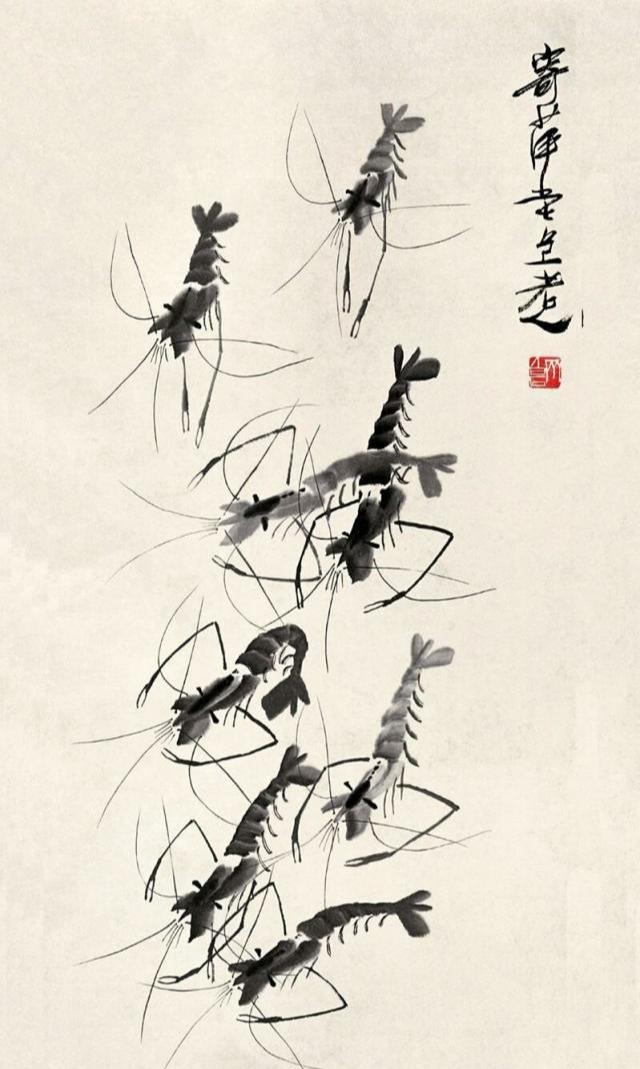 寄萍堂上老人